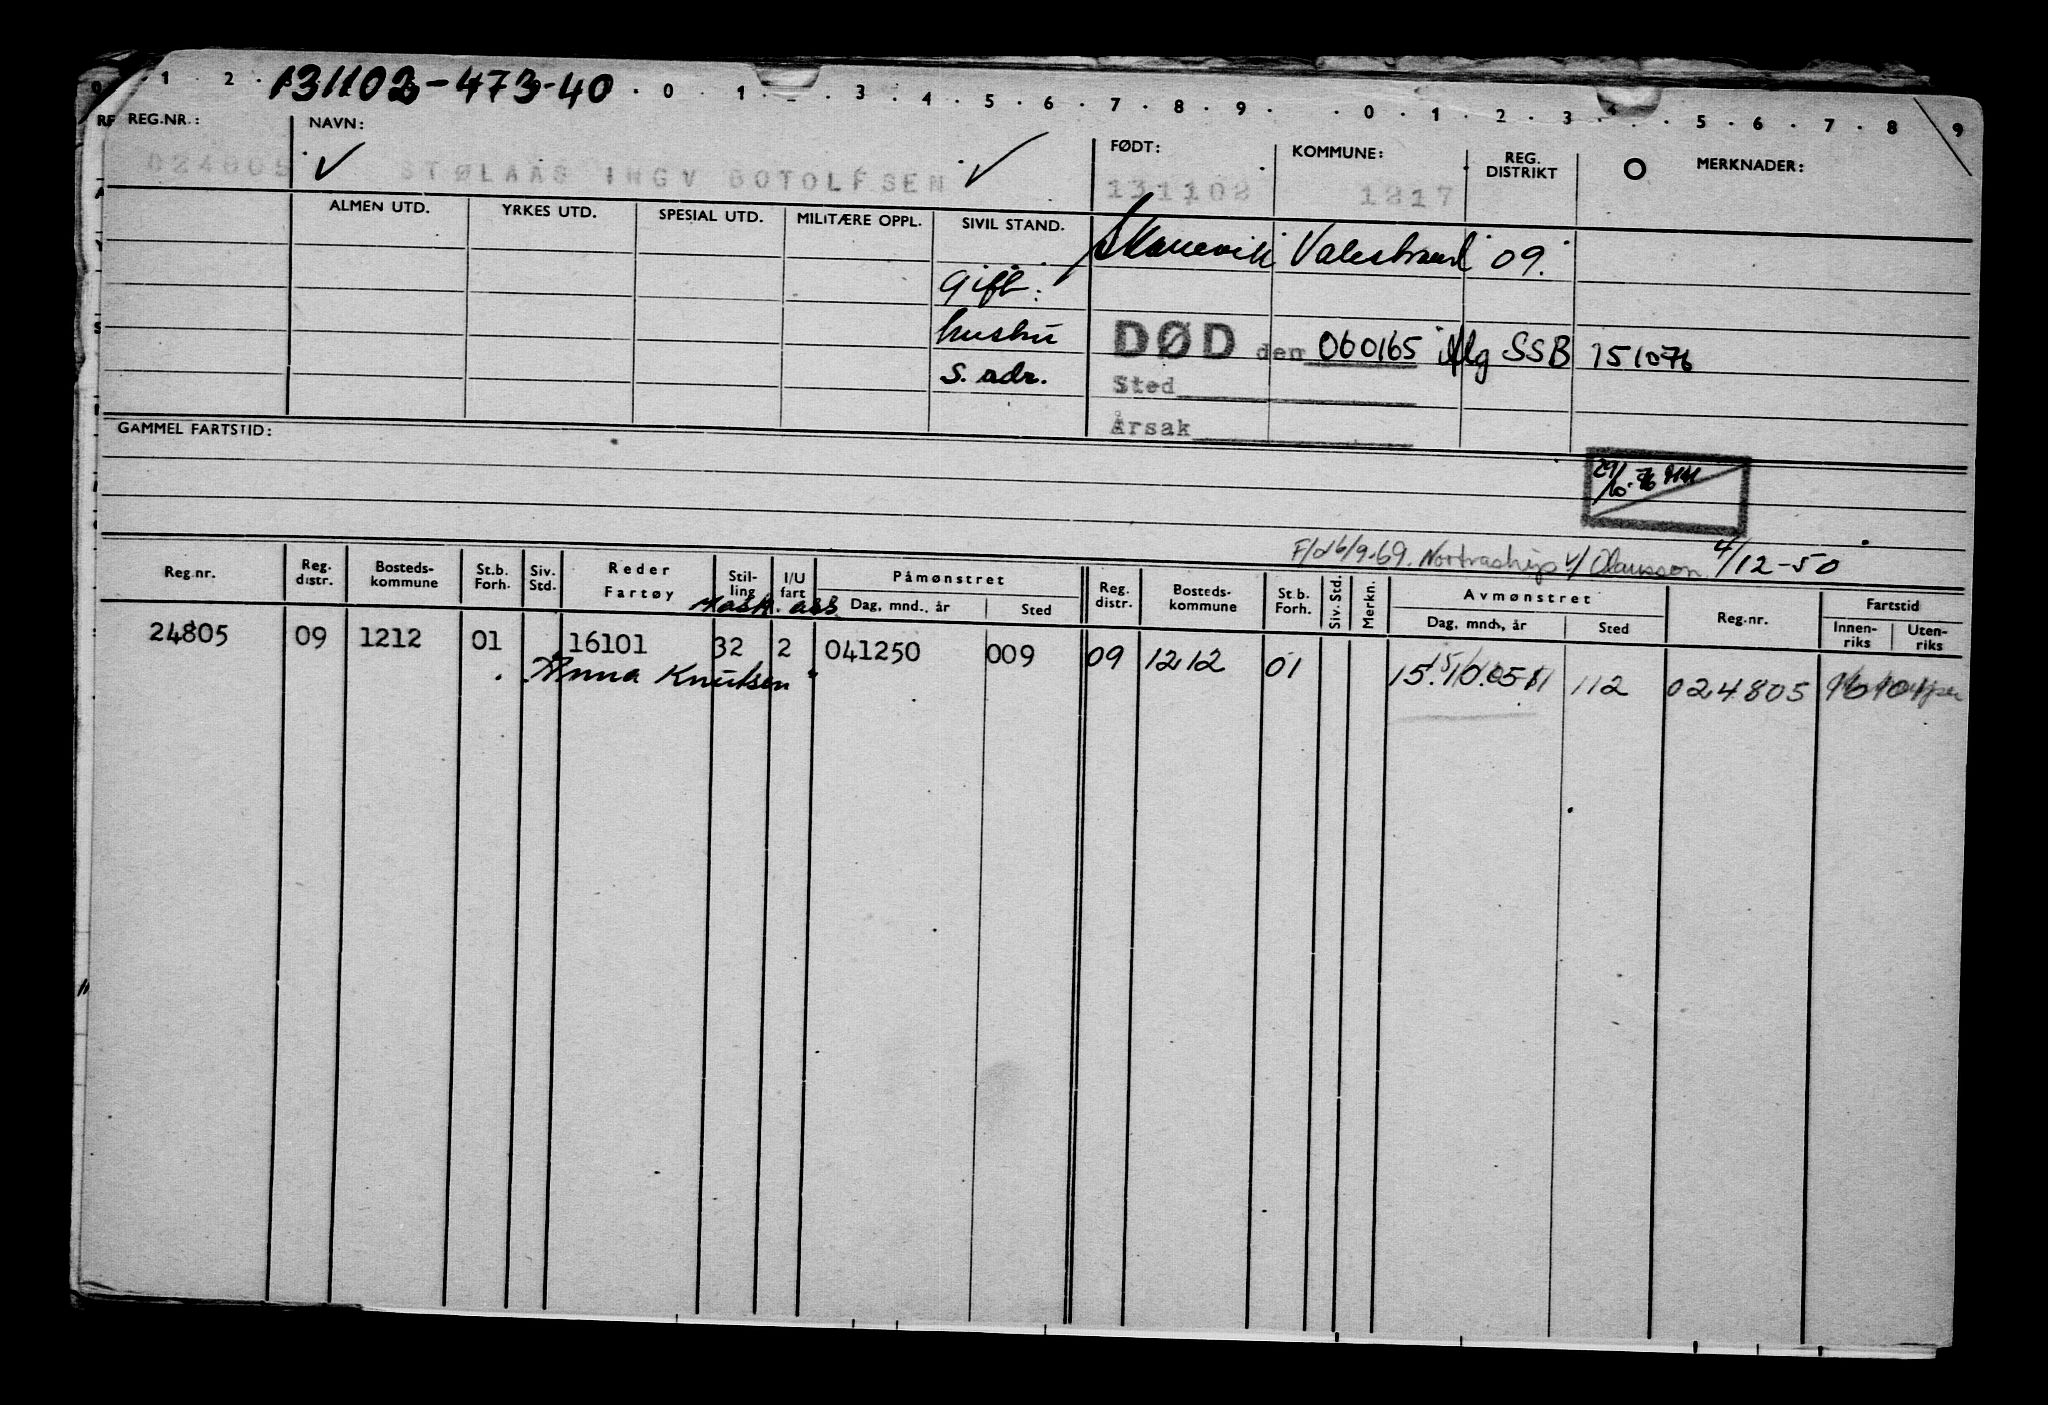 131102-473-40
0 . 1 . 2 . . 0 . 1 . . 3 . 4 . 5 . 6 . 7 . 8 . 9 . . 0 . 1 . 2 . 3 . . 5 . 6 . 7 . 8 . 9
RF REG.NR.: NAVN: FØDT: KOMMUNE: REG. DISTRIKT O MERKNADER:
024805 ✓ STØLAAS INGV BOTOLFSEN ✓ 131102 1217
ALMEN UTD. YRKES UTD. SPESIAL UTD. MILITÆRE OPPL. SIVIL STAND.
Skånevik Valestrand 09.
gift.
hustru
s. adr.
DØD den 060165 flg SSB 151076
Sted
Årsak
GAMMEL FARTSTID:
29/10-76
F/d 6/9-69. Nortraship v/ Olausson 4/12-50
Reg.nr. Reg. distr. Bosteds-kommune St.b. Forh. Siv. Std. Reder Fartøy Stil-ling I/U fart Påmønstret Dag, mnd., år Sted Reg. distr. Bosteds-kommune St.b. Forh. Siv. Std. Merkn. Avmønstret Dag, mnd., år Sted Reg.nr. Fartstid Innen-riks Uten-riks
Mask. ass
24805 09 1212 01 16101 32 2 041250 009 09 1212 01 112 024805
"Anna Knutsen"